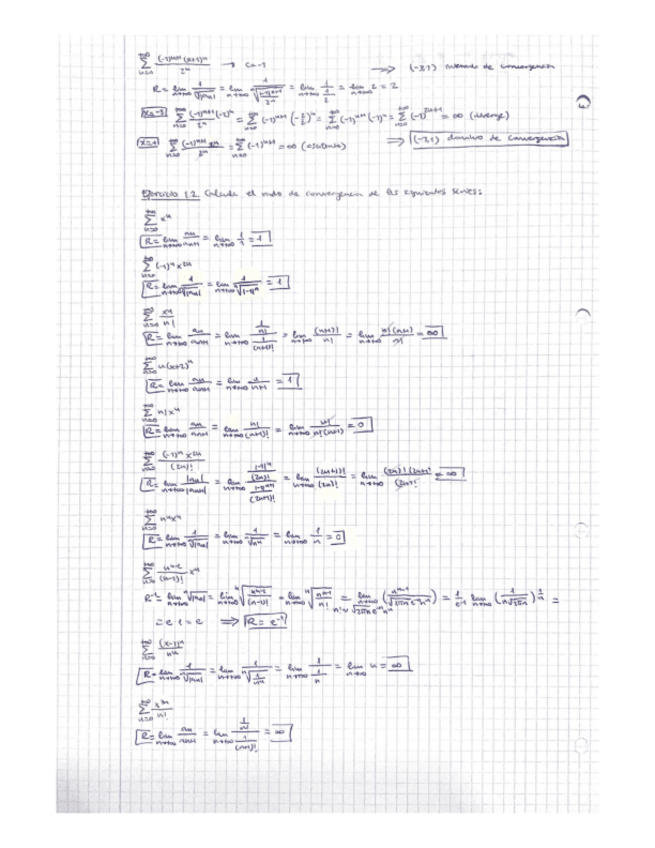 ∑_{n=0}^{+∞} (-1)^{n+1}(x+1)^n / 2^n → c=-1 ⇒ (-3,1) intervalo de convergencia
R = lim_{n→+∞} 1/ⁿ√|an| = lim_{n→+∞} 1/ⁿ√(|(-1)^{n+1}|/2^n) = lim_{n→+∞} 1/(1/2) = lim_{n→+∞} 2 = 2
x=-3 ∑_{n=0}^{+∞} (-1)^{n+1}(-2)^n / 2^n = ∑_{n=0}^{+∞} (-1)^{n+1} (-2/2)^n = ∑_{n=0}^{+∞} (-1)^{n+1} (-1)^n = ∑_{n=0}^{+∞} (-1)^{2n+1} = ∞ (diverge)
x=1 ∑_{n=0}^{+∞} (-1)^{n+1} 2^n / 2^n = ∑_{n=0}^{+∞} (-1)^{n+1} = ∞ (oscilante) ⇒ (-3,1) dominio de convergencia
Ejercicio 1.2. Calcula el radio de convergencia de las siguientes series:
∑_{n=0}^{+∞} x^n
R = lim_{n→+∞} an/an+1 = lim_{n→+∞} 1/1 = 1
∑_{n=0}^{+∞} (-1)^n x^{2n}
R = lim_{n→+∞} 1/ⁿ√|an| = lim_{n→+∞} 1/ⁿ√|-1|^n = 1
∑_{n=0}^{+∞} x^n/n!
R = lim_{n→+∞} an/an+1 = lim_{n→+∞} (1/n!)/(1/(n+1)!) = lim_{n→+∞} (n+1)!/n! = lim_{n→+∞} n!(n+1)/n! = ∞
∑_{n=0}^{+∞} n(x+2)^n
R = lim_{n→+∞} an/an+1 = lim_{n→+∞} n/n+1 = 1
∑_{n=0}^{+∞} n! x^n
R = lim_{n→+∞} an/an+1 = lim_{n→+∞} n!/(n+1)! = lim_{n→+∞} n!/n!(n+1) = 0
∑_{n=0}^{+∞} (-1)^n x^{2n} / (2n)!
R = lim_{n→+∞} |an|/|an+1| = lim_{n→+∞} (|-1|^n/(2n)!)/(|-1|^{n+1}/(2n+1)!) = lim_{n→+∞} (2n+1)!/(2n)! = lim_{n→+∞} (2n)!(2n+1)/(2n)! = ∞
∑_{n=0}^{+∞} n^n x^n
R = lim_{n→+∞} 1/ⁿ√|an| = lim_{n→+∞} 1/ⁿ√n^n = lim_{n→+∞} 1/n = 0
∑_{n=0}^{+∞} n^{n-2}/(n-1)! x^n
R^{-1} = lim_{n→+∞} ⁿ√|an| = lim_{n→+∞} ⁿ√(n^{n-2}/(n-1)!) = lim_{n→+∞} ⁿ√(n^{n-1}/n!) = lim_{n→+∞} (n^{n-1}/√2πn e^{-n} n^n) = 1/e^{-1} lim_{n→+∞} (1/n√2πn)^{1/n} =
n! ∼ √2πn e^{-n} n^n
= e·1 = e ⇒ R = e^{-1}
∑_{n=0}^{+∞} (x-1)^n / n^n
R = lim_{n→+∞} 1/ⁿ√|an| = lim_{n→+∞} 1/ⁿ√(1/n^n) = lim_{n→+∞} 1/(1/n) = lim_{n→+∞} n = ∞
∑_{n=0}^{+∞} x^{3n}/n!
R = lim_{n→+∞} an/an+1 = lim_{n→+∞} (1/n!)/(1/(n+1)!) = ∞